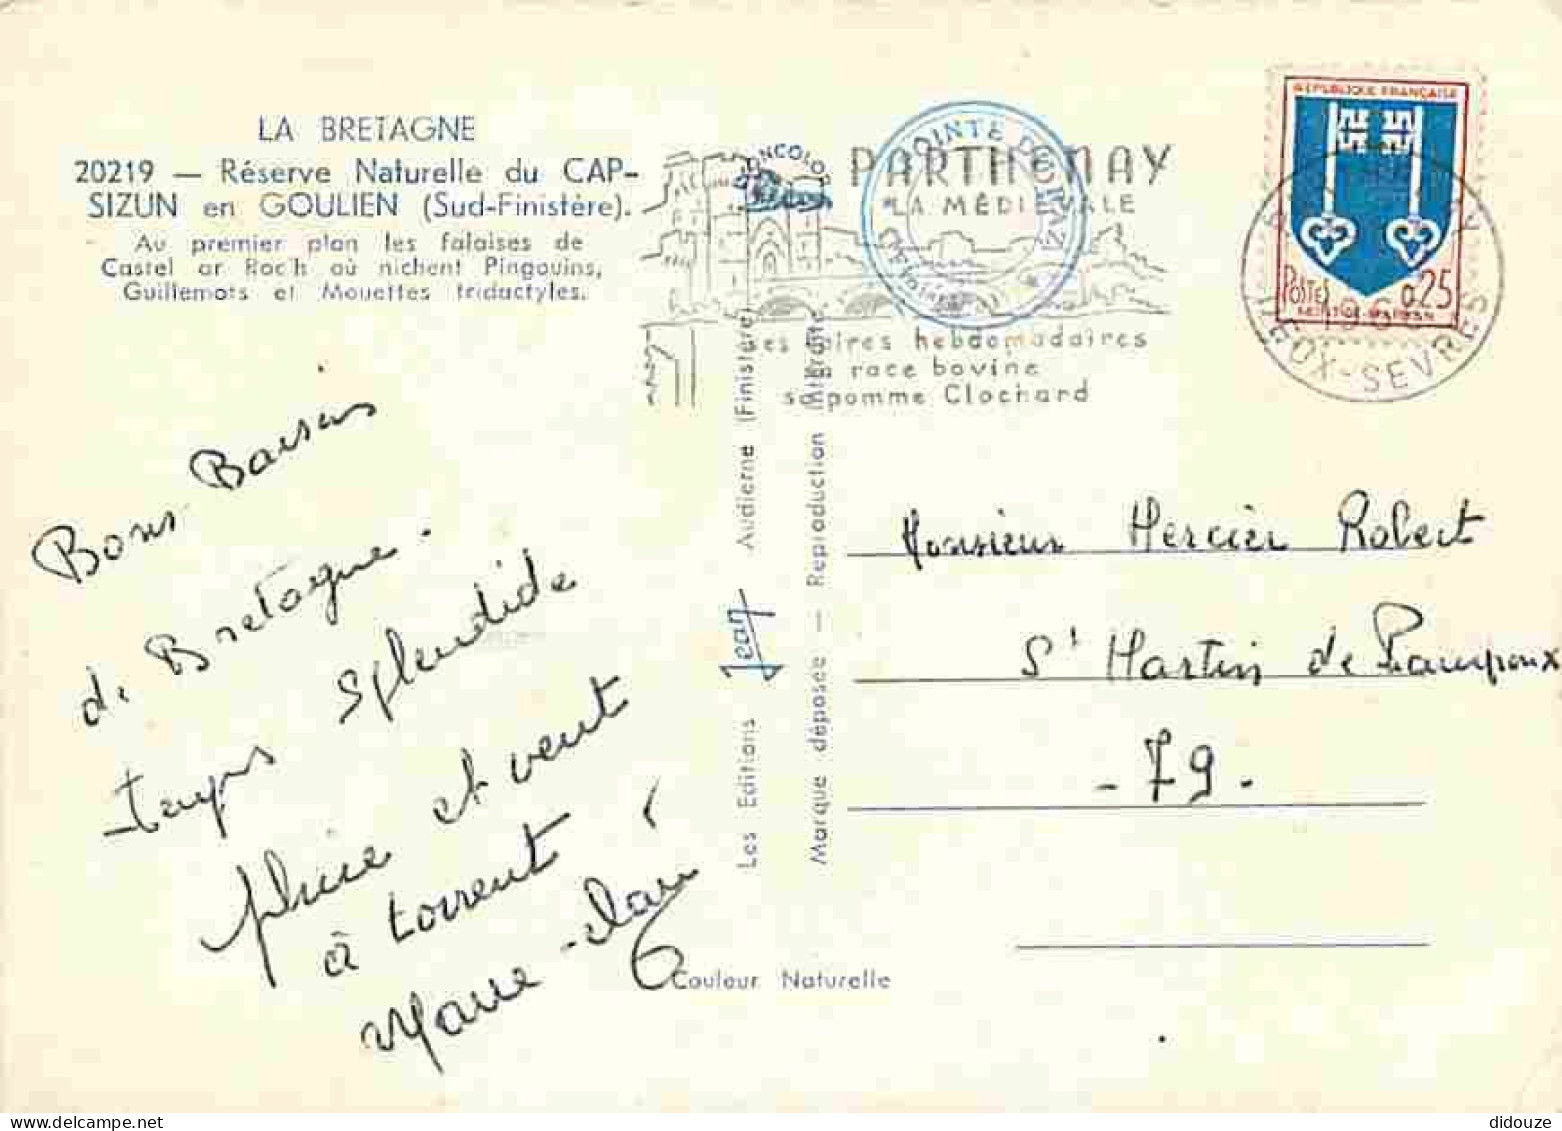 LA BRETAGNE
20219 — Réserve Naturelle du CAP-
SIZUN en GOULIEN (Sud-Finistère).
Au premier plan les falaises de
Castel ar Roc'h où nichent Pingouins,
Guillemots et Mouettes tridactyles.
PARTHENAY
LA MÉDIEVALE
ses foires hebdomadaires
sa race bovine
sa pomme Clochard
POINTE DU RAZ
REPUBLIQUE FRANÇAISE
POSTES 0,25
DEUX-SEVRES
Bons Baisers
de Bretagne.
temps splendide
pluie et vent
à torrent
Marie-
Les Editions Jean Audierne (Finistère)
Marque déposée — Reproduction interdite
Monsieur Mercier Robert
St Martin de
- 79 -
Couleur Naturelle
didouze